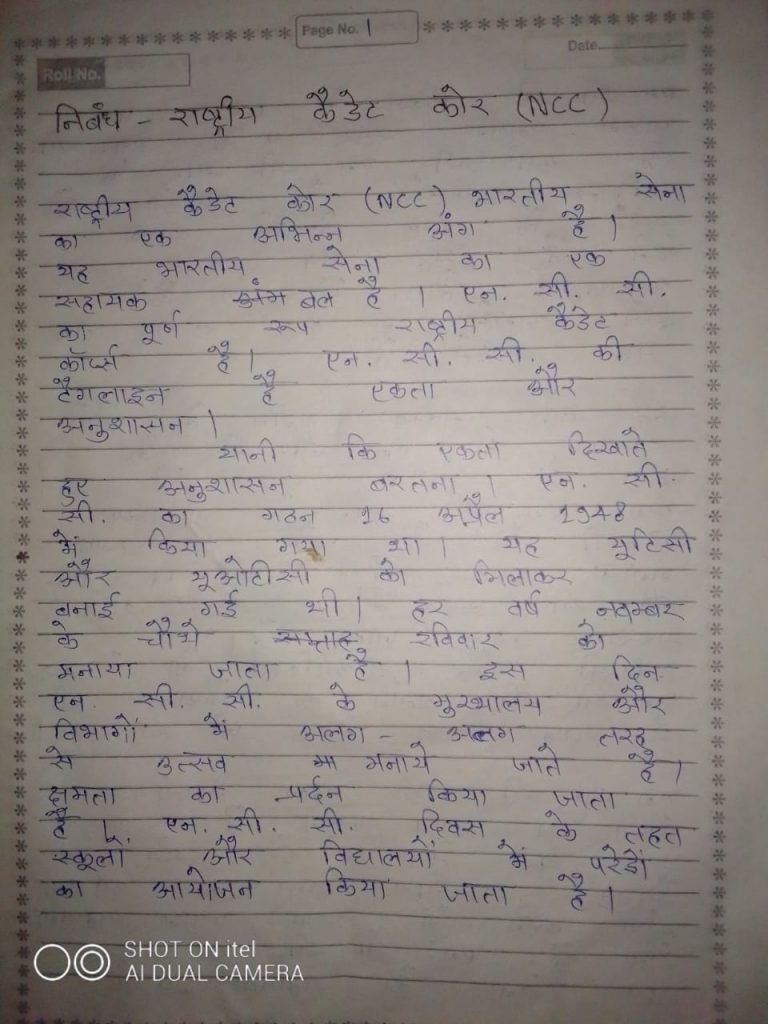 Page No. 1
Date
Roll No.
निबंध - राष्ट्रीय कैडेट कोर (NCC)
राष्ट्रीय कैडेट कोर (NCC) भारतीय सेना
का एक अभिन्न अंग है।
यह भारतीय सेना का एक
सहायक बल है। एन. सी. सी.
का पूर्ण रूप राष्ट्रीय कैडेट
कॉर्प्स है। एन. सी. सी. की
टैगलाइन है एकता और
अनुशासन।
यानी कि एकता दिखाते
हुए अनुशासन बरतना। एन. सी.
सी. का गठन 16 अप्रैल 1948
में किया गया था। यह यूटिसी
और यूओटीसी को मिलाकर
बनाई गई थी। हर वर्ष नवम्बर
के चौथे रविवार को
मनाया जाता है। इस दिन
एन. सी. सी. के मुख्यालय और
विभागों में अलग - अलग तरह
से उत्सव मनाये जाते है।
क्षमता का प्रर्दन किया जाता
है। एन. सी. सी. दिवस के तहत
स्कूलों और विद्यालयों में परेडों
का आयोजन किया जाता है।
SHOT ON itel
AI DUAL CAMERA